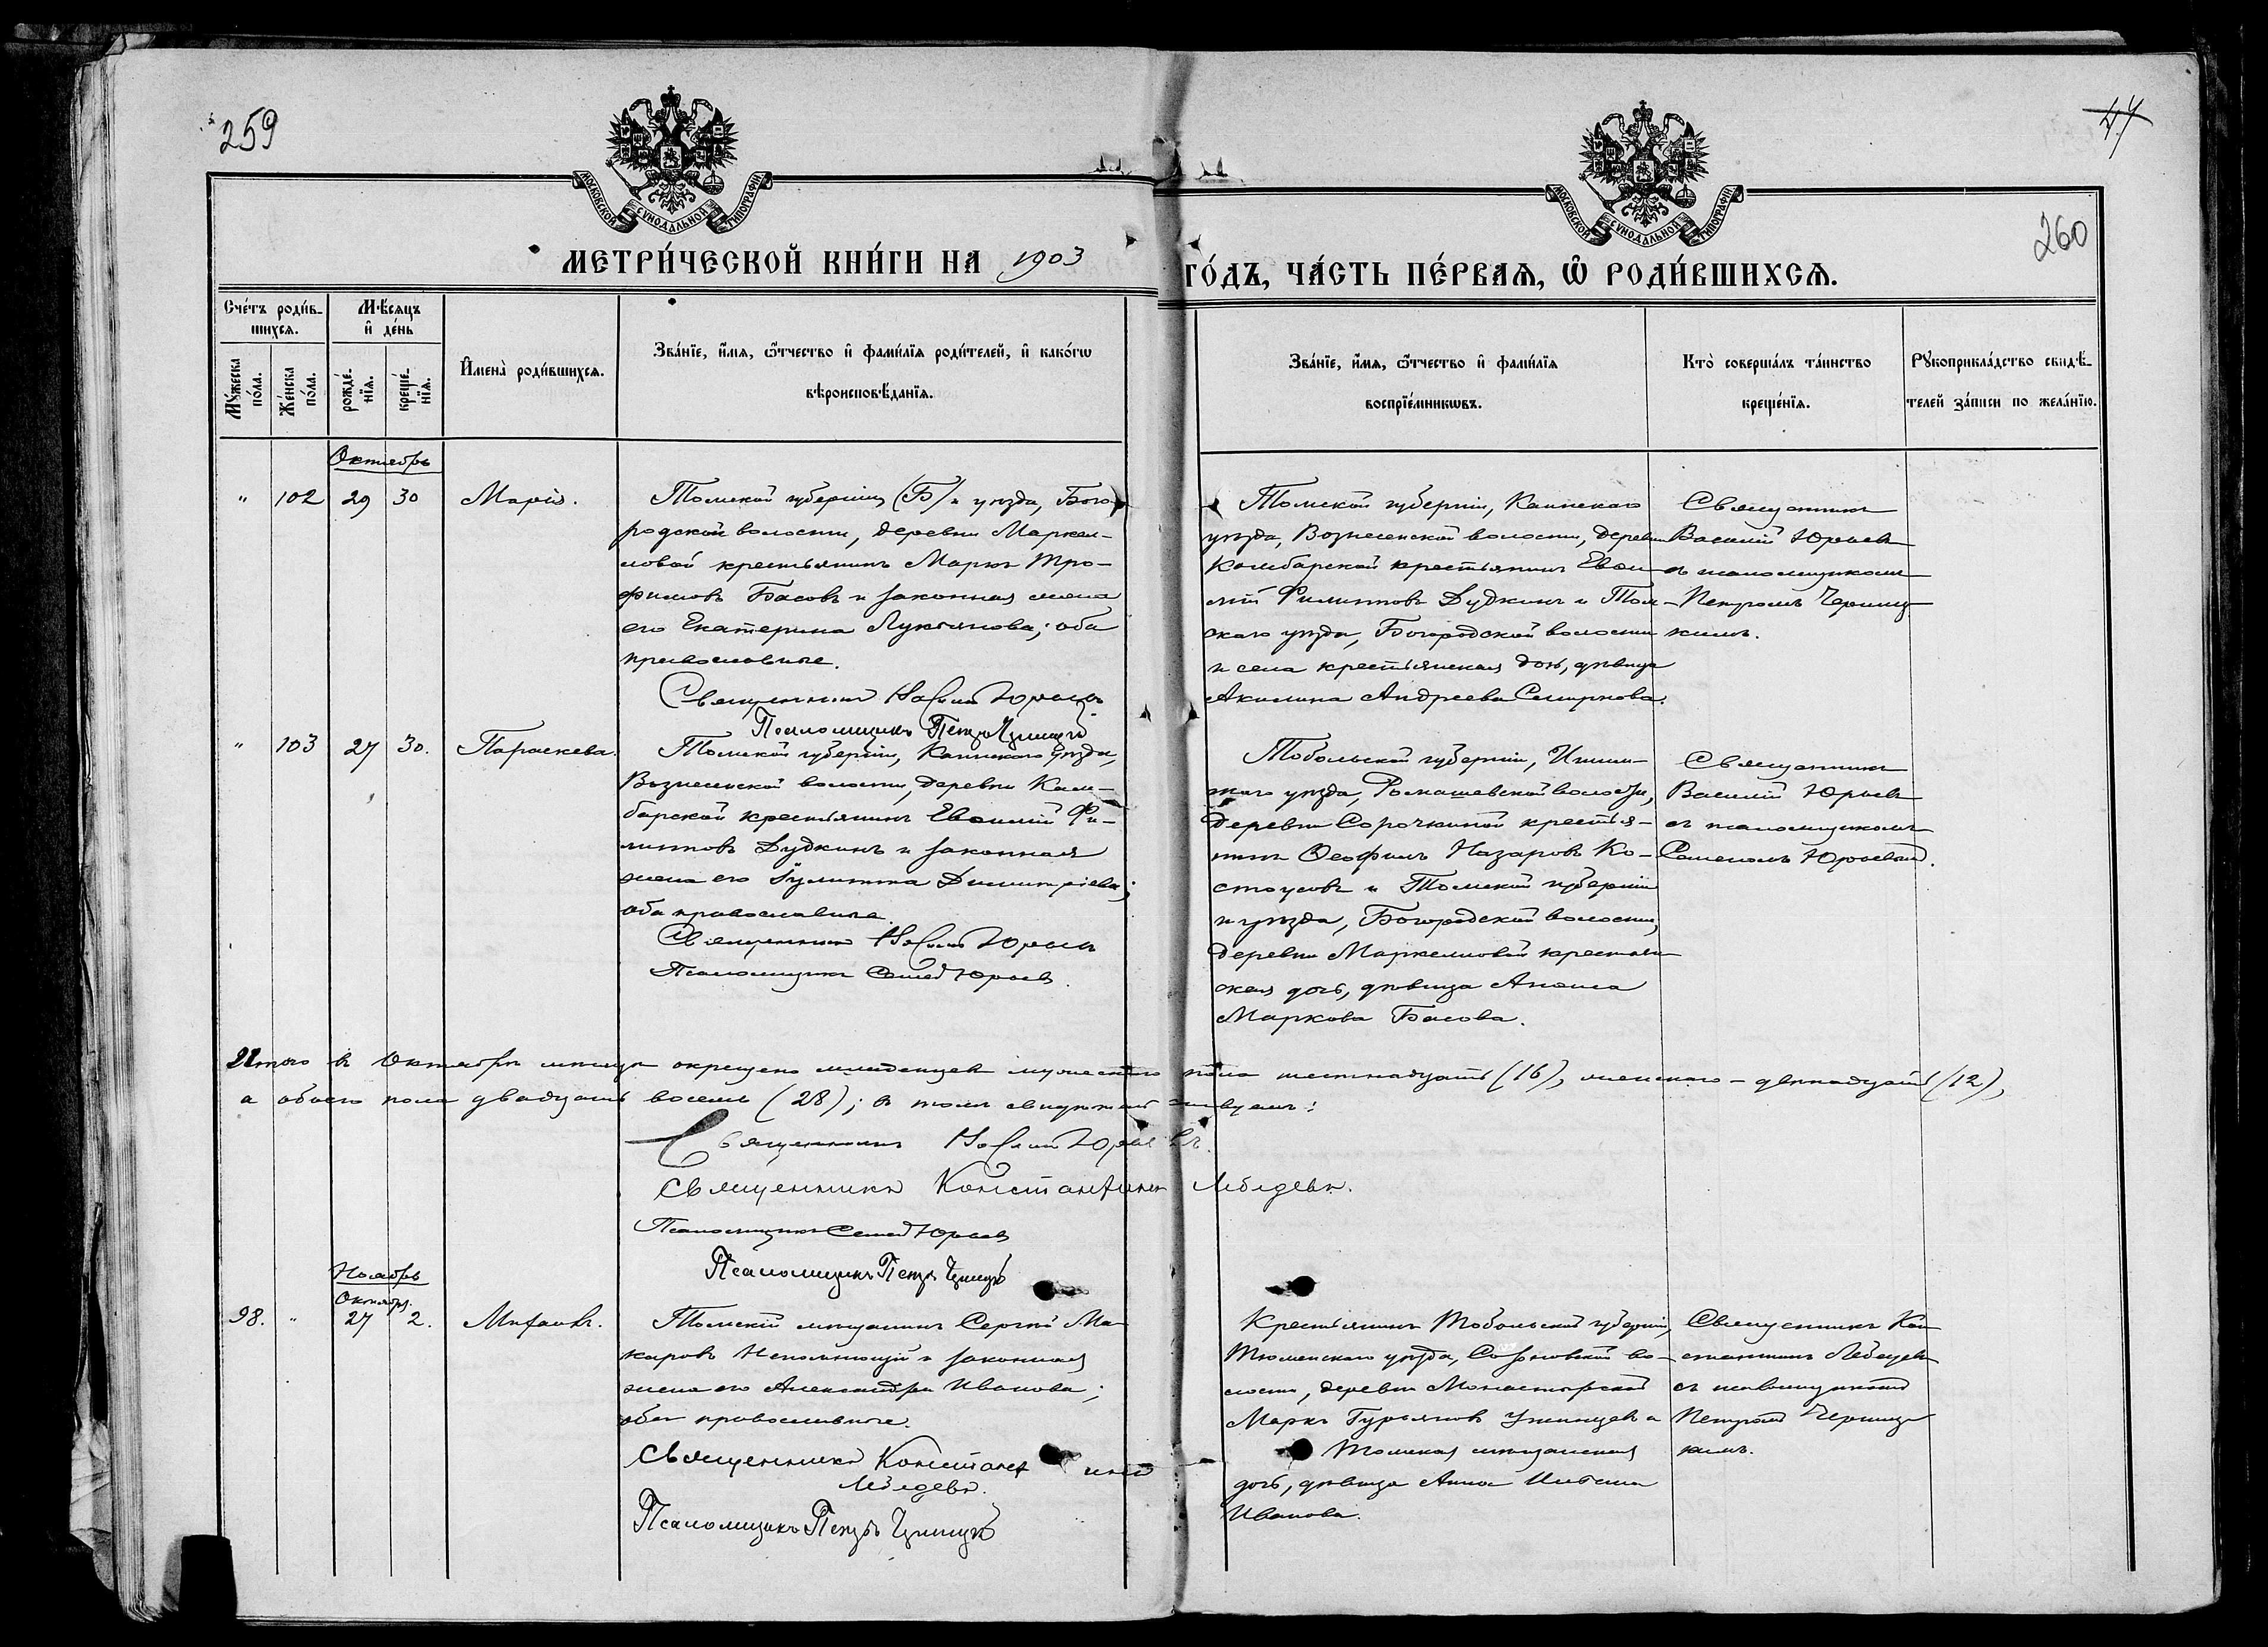 259
44
260
МОСКОВСКОЙ СѴНОДАЛЬНОЙ ТИПОГРАФІИ
МОСКОВСКОЙ СѴНОДАЛЬНОЙ ТИПОГРАФІИ
МЕТРИ́ЧЕСКОЙ КНИ́ГИ НА 1903 ГО́ДЪ, ЧА́СТЬ ПЕ́РВАѦ, Ѡ҆ РОДИ́ВШИХСѦ.
Сче́тъ роди́в-
шихсѧ.
Мѣ́сѧцъ
и҆ де́нь
Мꙋ́жеска по́ла.
Же́нска по́ла.
рожде́-
нїѧ.
креще́-
нїѧ.
И҆мена̀ роди́вшихсѧ.
Зва́нїе, и҆́мѧ, ѻ҆́тчество и҆ фами́лїѧ роди́телей, и҆ како́гѡ
вѣроисповѣ́данїѧ.
Зва́нїе, и҆́мѧ, ѻ҆́тчество и҆ фами́лїѧ
воспрїе́мникѡвъ.
Кто̀ соверша́лъ та́инство
креще́нїѧ.
Рꙋкоприкла́дство свидѣ́-
телей за́писи по жела́нїю.
Октябрь
" 102 29 30 Марія.
Томской губерніи (Б) и уѣзда, Бого-
родской волости, деревни Маркел-
ловой крестьянинъ Маркъ Тро-
фимовъ Басовъ и законная жена
его Екатерина Лукіянова; оба
православные.
Священникъ Василій Юрьевъ
Псаломщикъ Петръ
Томской губерніи, Каинскаго
уѣзда, Вознесенской волости, деревни
Камбарской крестьянинъ Евѳи-
мій Филипповъ Дудкинъ и Том-
скаго уѣзда, Богородской волости
и села крестьянская дочь, дѣвица
Акилина Андреева Смирнова.
Священникъ
Василій Юрьевъ
съ псаломщикомъ
Петромъ
" 103 27 30. Параскева.
Томской губерніи, Каинскаго уѣзда,
Вознесенской волости, деревни Кам-
барской крестьянинъ Евѳимій Фи-
липповъ Дудкинъ и законная
жена его Іулитта Димитріева;
оба православные.
Священникъ Василій Юрьевъ
Псаломщикъ Семенъ Юрьевъ.
Тобольской губерніи, Ишим-
скаго уѣзда, Ромашевской волости,
деревни Сорочкиной крестья-
нинъ Ѳеофилъ Назаровъ Ко-
стоусовъ и Томской губерніи
и уѣзда, Богородской волости,
деревни Маркелловой крестьян-
ская дочь, дѣвица Анѳиса
Маркова Басова.
Священникъ
Василій Юрьевъ
съ псаломщикомъ
Семеномъ Юрьевымъ.
Итого въ Октябрѣ мѣсяцѣ окрещено младенцевъ мужескаго пола шестнадцать (16), женскаго - двѣнадцать (12),
а обоего пола двадцать восемь (28); въ томъ свидѣтельствуемъ:
Священникъ Василій Юрьевъ.
Священникъ Константинъ Лебедевъ.
Псаломщикъ Семенъ Юрьевъ
Псаломщикъ Петръ
Ноябрь
Октября.
98. " 27 2. Михаилъ.
Томскій мѣщанинъ Сергѣй Ма-
каровъ Непомнящій и законная
жена его Александра Иванова;
оба православные.
Священникъ Константинъ
Лебедевъ.
Псаломщикъ Петръ
Крестьянинъ Тобольской губерніи,
Тюменскаго уѣзда, Созоновской во-
лости, деревни Монастырской
Маркъ Гурьяновъ и
Томская мѣщанская
дочь, дѣвица Анна
Иванова.
Священникъ Кон-
стантинъ Лебедевъ
съ псаломщикомъ
Петромъ